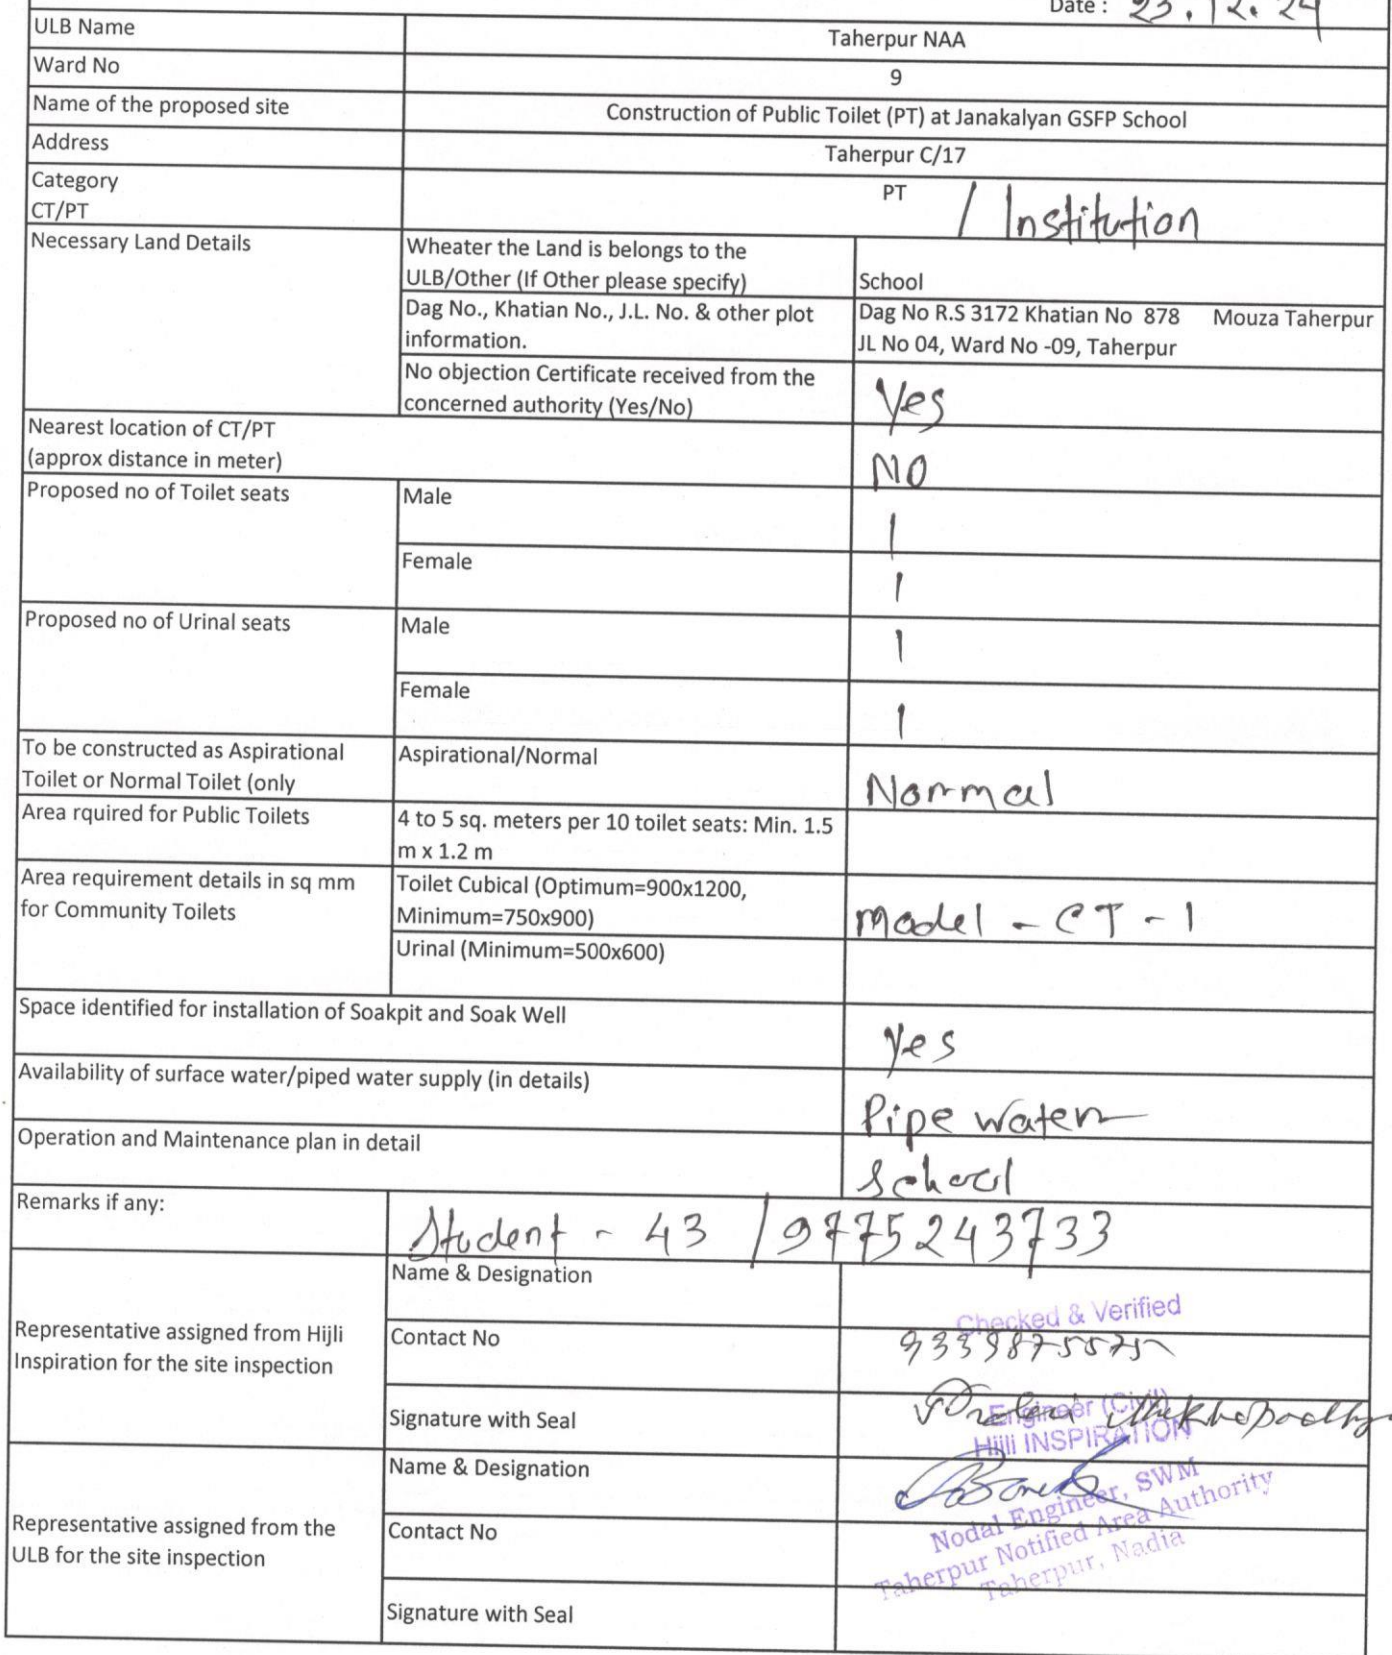 Date : 23.12.24
ULB Name
Taherpur NAA
Ward No
9
Name of the proposed site
Construction of Public Toilet (PT) at Janakalyan GSFP School
Address
Taherpur C/17
Category
CT/PT
PT / Institution
Necessary Land Details
Wheater the Land is belongs to the
ULB/Other (If Other please specify)
School
Dag No., Khatian No., J.L. No. & other plot
information.
Dag No R.S 3172 Khatian No 878 Mouza Taherpur
JL No 04, Ward No -09, Taherpur
No objection Certificate received from the
concerned authority (Yes/No)
Yes
Nearest location of CT/PT
(approx distance in meter)
NO
Proposed no of Toilet seats
Male
1
Female
1
Proposed no of Urinal seats
Male
1
Female
1
To be constructed as Aspirational
Toilet or Normal Toilet (only
Aspirational/Normal
Normal
Area rquired for Public Toilets
4 to 5 sq. meters per 10 toilet seats: Min. 1.5
m x 1.2 m
Area requirement details in sq mm
for Community Toilets
Toilet Cubical (Optimum=900x1200,
Minimum=750x900)
Model - CT - 1
Urinal (Minimum=500x600)
Space identified for installation of Soakpit and Soak Well
Yes
Availability of surface water/piped water supply (in details)
Pipe water
Operation and Maintenance plan in detail
School
Remarks if any:
Student - 43 / 9775243733
Representative assigned from Hijli
Inspiration for the site inspection
Name & Designation
Checked & Verified
Contact No
Signature with Seal
Mukhopadhy
Engineer (Civil)
Hijli INSPIRATION
Representative assigned from the
ULB for the site inspection
Name & Designation
Nodal Engineer, SWM
Taherpur Notified Area Authority
Taherpur, Nadia
Contact No
Signature with Seal